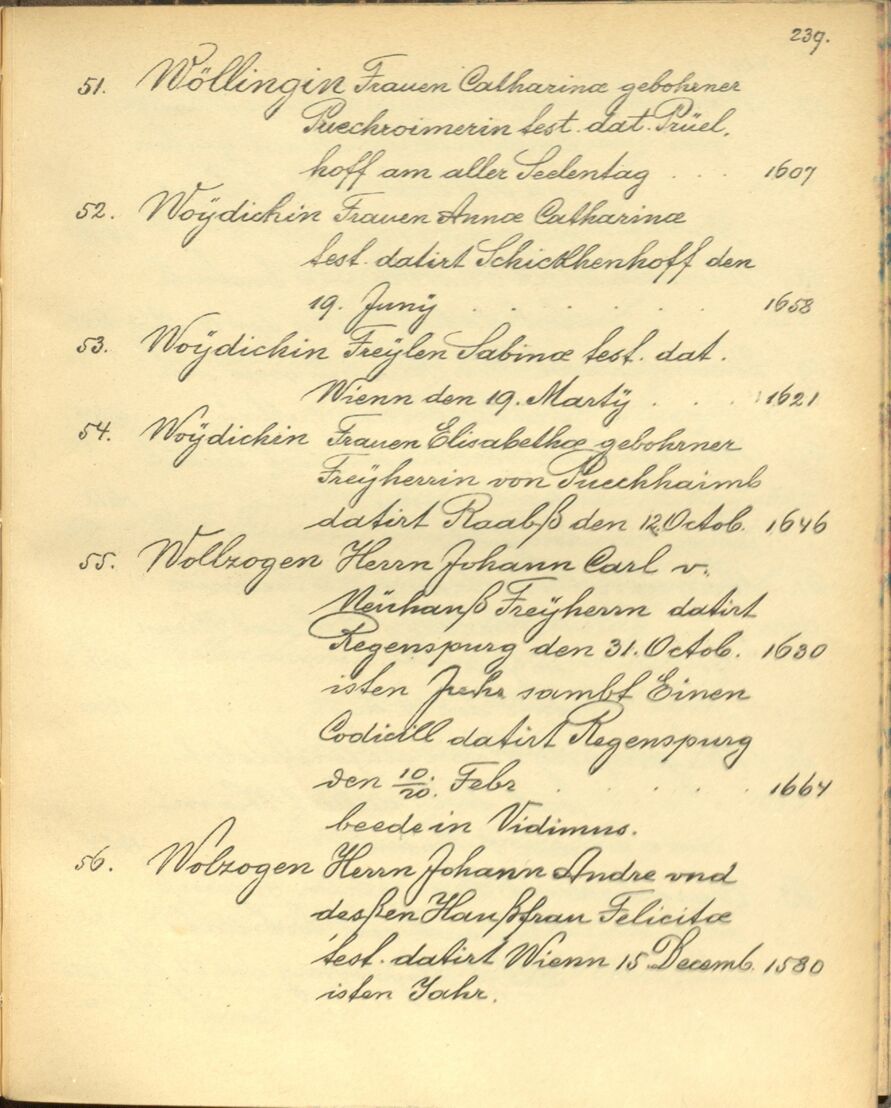 239.
51. Wöllingin Frauen Catharinæ gebohrner
Puechroimerin test. dat. Prüel,
hoff am aller Seelentag . . . 1607
52. Woÿdichin Frauen Annæ Catharinæ
test. datirt Schickhenhoff den
19. Junÿ . . . . . 1658
53. Woÿdichin Freÿlen Sabinæ test. dat.
Wienn den 19. Martÿ . . . 1621
54. Woÿdichin Frauen Elisabethæ gebohrner
Freÿherrin von Puechhaimb
datirt Raabß den 12. Octob. 1646
55. Wollzogen Herrn Johann Carl v.
Neühauß Freÿherrn datirt
Regenspurg den 31. Octob. 1630
isten Jahr sambt Einen
Codicill datirt Regenspurg
den 10./20. Febr . . . . . 1664
beede in Vidimus.
56. Wolzogen Herrn Johann Andre vnd
desßen Haußfrau Felicitæ
test. datirt Wienn 15 Decemb. 1580
isten Jahr.